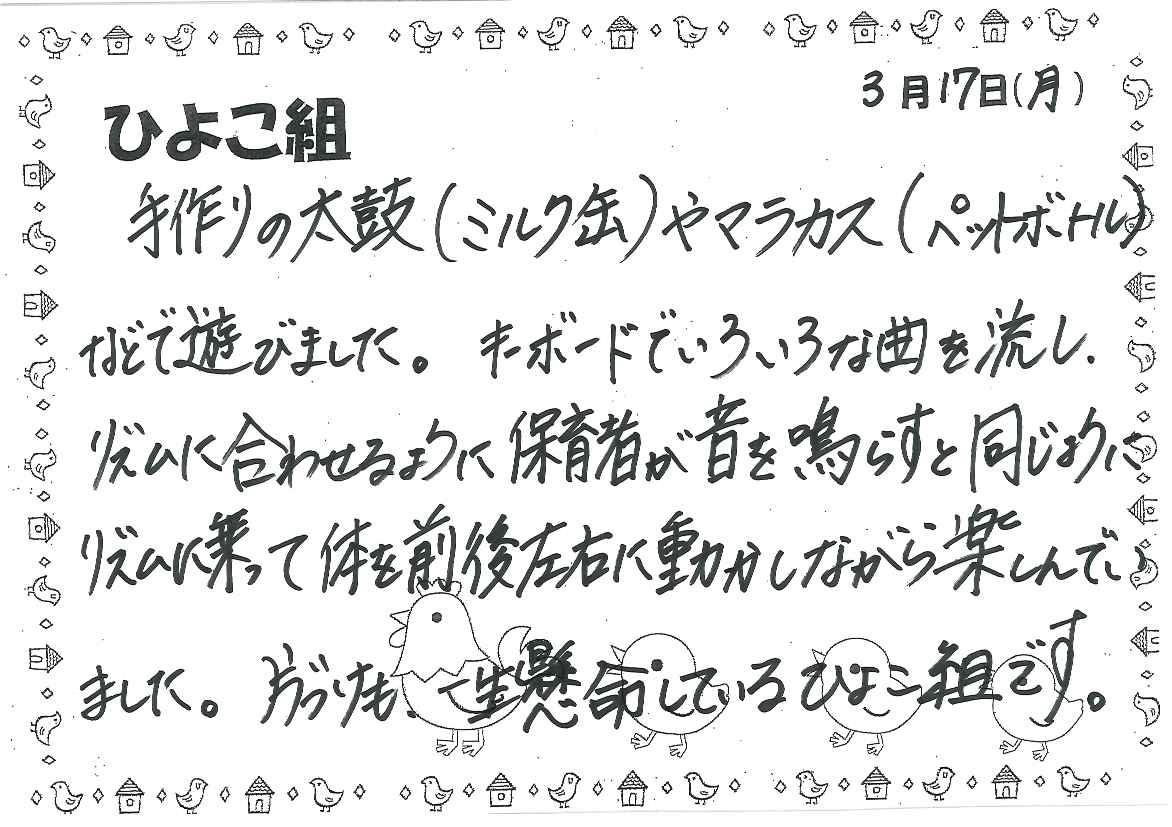 3月17日(月)
ひよこ組
手作りの太鼓(ミルク缶)やマラカス(ペットボトル)
などで遊びました。 キーボードでいろいろな曲を流し、
リズムに合わせるように保育者が音を鳴らすと同じように
リズムに乗って体を前後左右に動かしながら楽しんでい
ました。 片づけも、一生懸命しているひよこ組です。